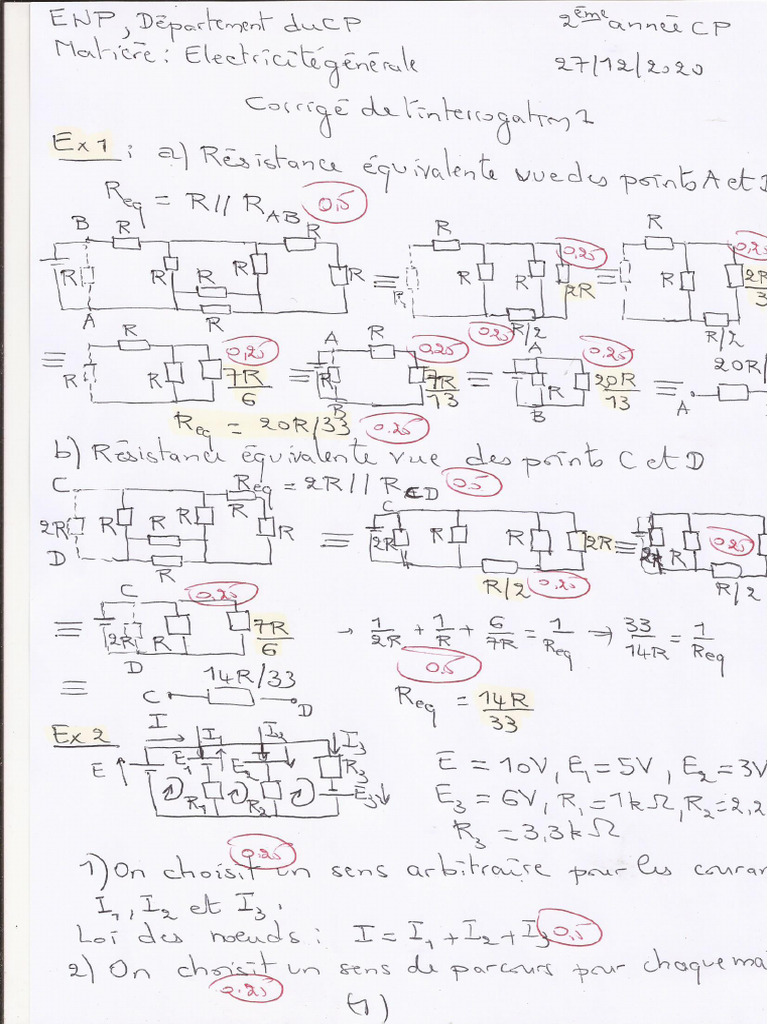 ENP, Département du CP
2ème année CP
Matière : Electricité générale
27/12/2020
Corrigé de l'interrogation 1
Ex 1 : a) Résistance équivalente vue des points A et
Req = R // RAB 0,5
B R R R R R R R A ≡ R R R R 0,25 2R R/2 ≡ R R 0,25 2R/3 R/2
≡ R R R 0,25 7R/6 ≡ A R R B 0,25 7R/13 ≡ 0,25 A B 0,25 20R/13 ≡ A 20R/
Req = 20R/33 0,25
b) Résistance équivalente vue des points C et D
Req = 2R // RCD 0,5
C 2R D R R R R R R ≡ C 2R R R 2R R/2 0,25 ≡ 2R R 0,25 R/2
≡ C 2R D R 0,25 7R/6 → 1/2R + 1/R + 6/7R = 1/Req → 33/14R = 1/Req
≡ C 14R/33 D 0,5 Req = 14R/33
Ex 2
I I1 I2 I3
E E1 R1 E2 R2 R3 E3
E = 10V, E1 = 5V, E2 = 3V
E3 = 6V, R1 = 1kΩ, R2 = 2,2
R3 = 3,3kΩ
0,25
1) On choisit un sens arbitraire pour les couran
I1, I2 et I3.
Loi des nœuds : I = I1 + I2 + I3 0,5
2) On choisit un sens de parcours pour chaque mai
0,25
(1)